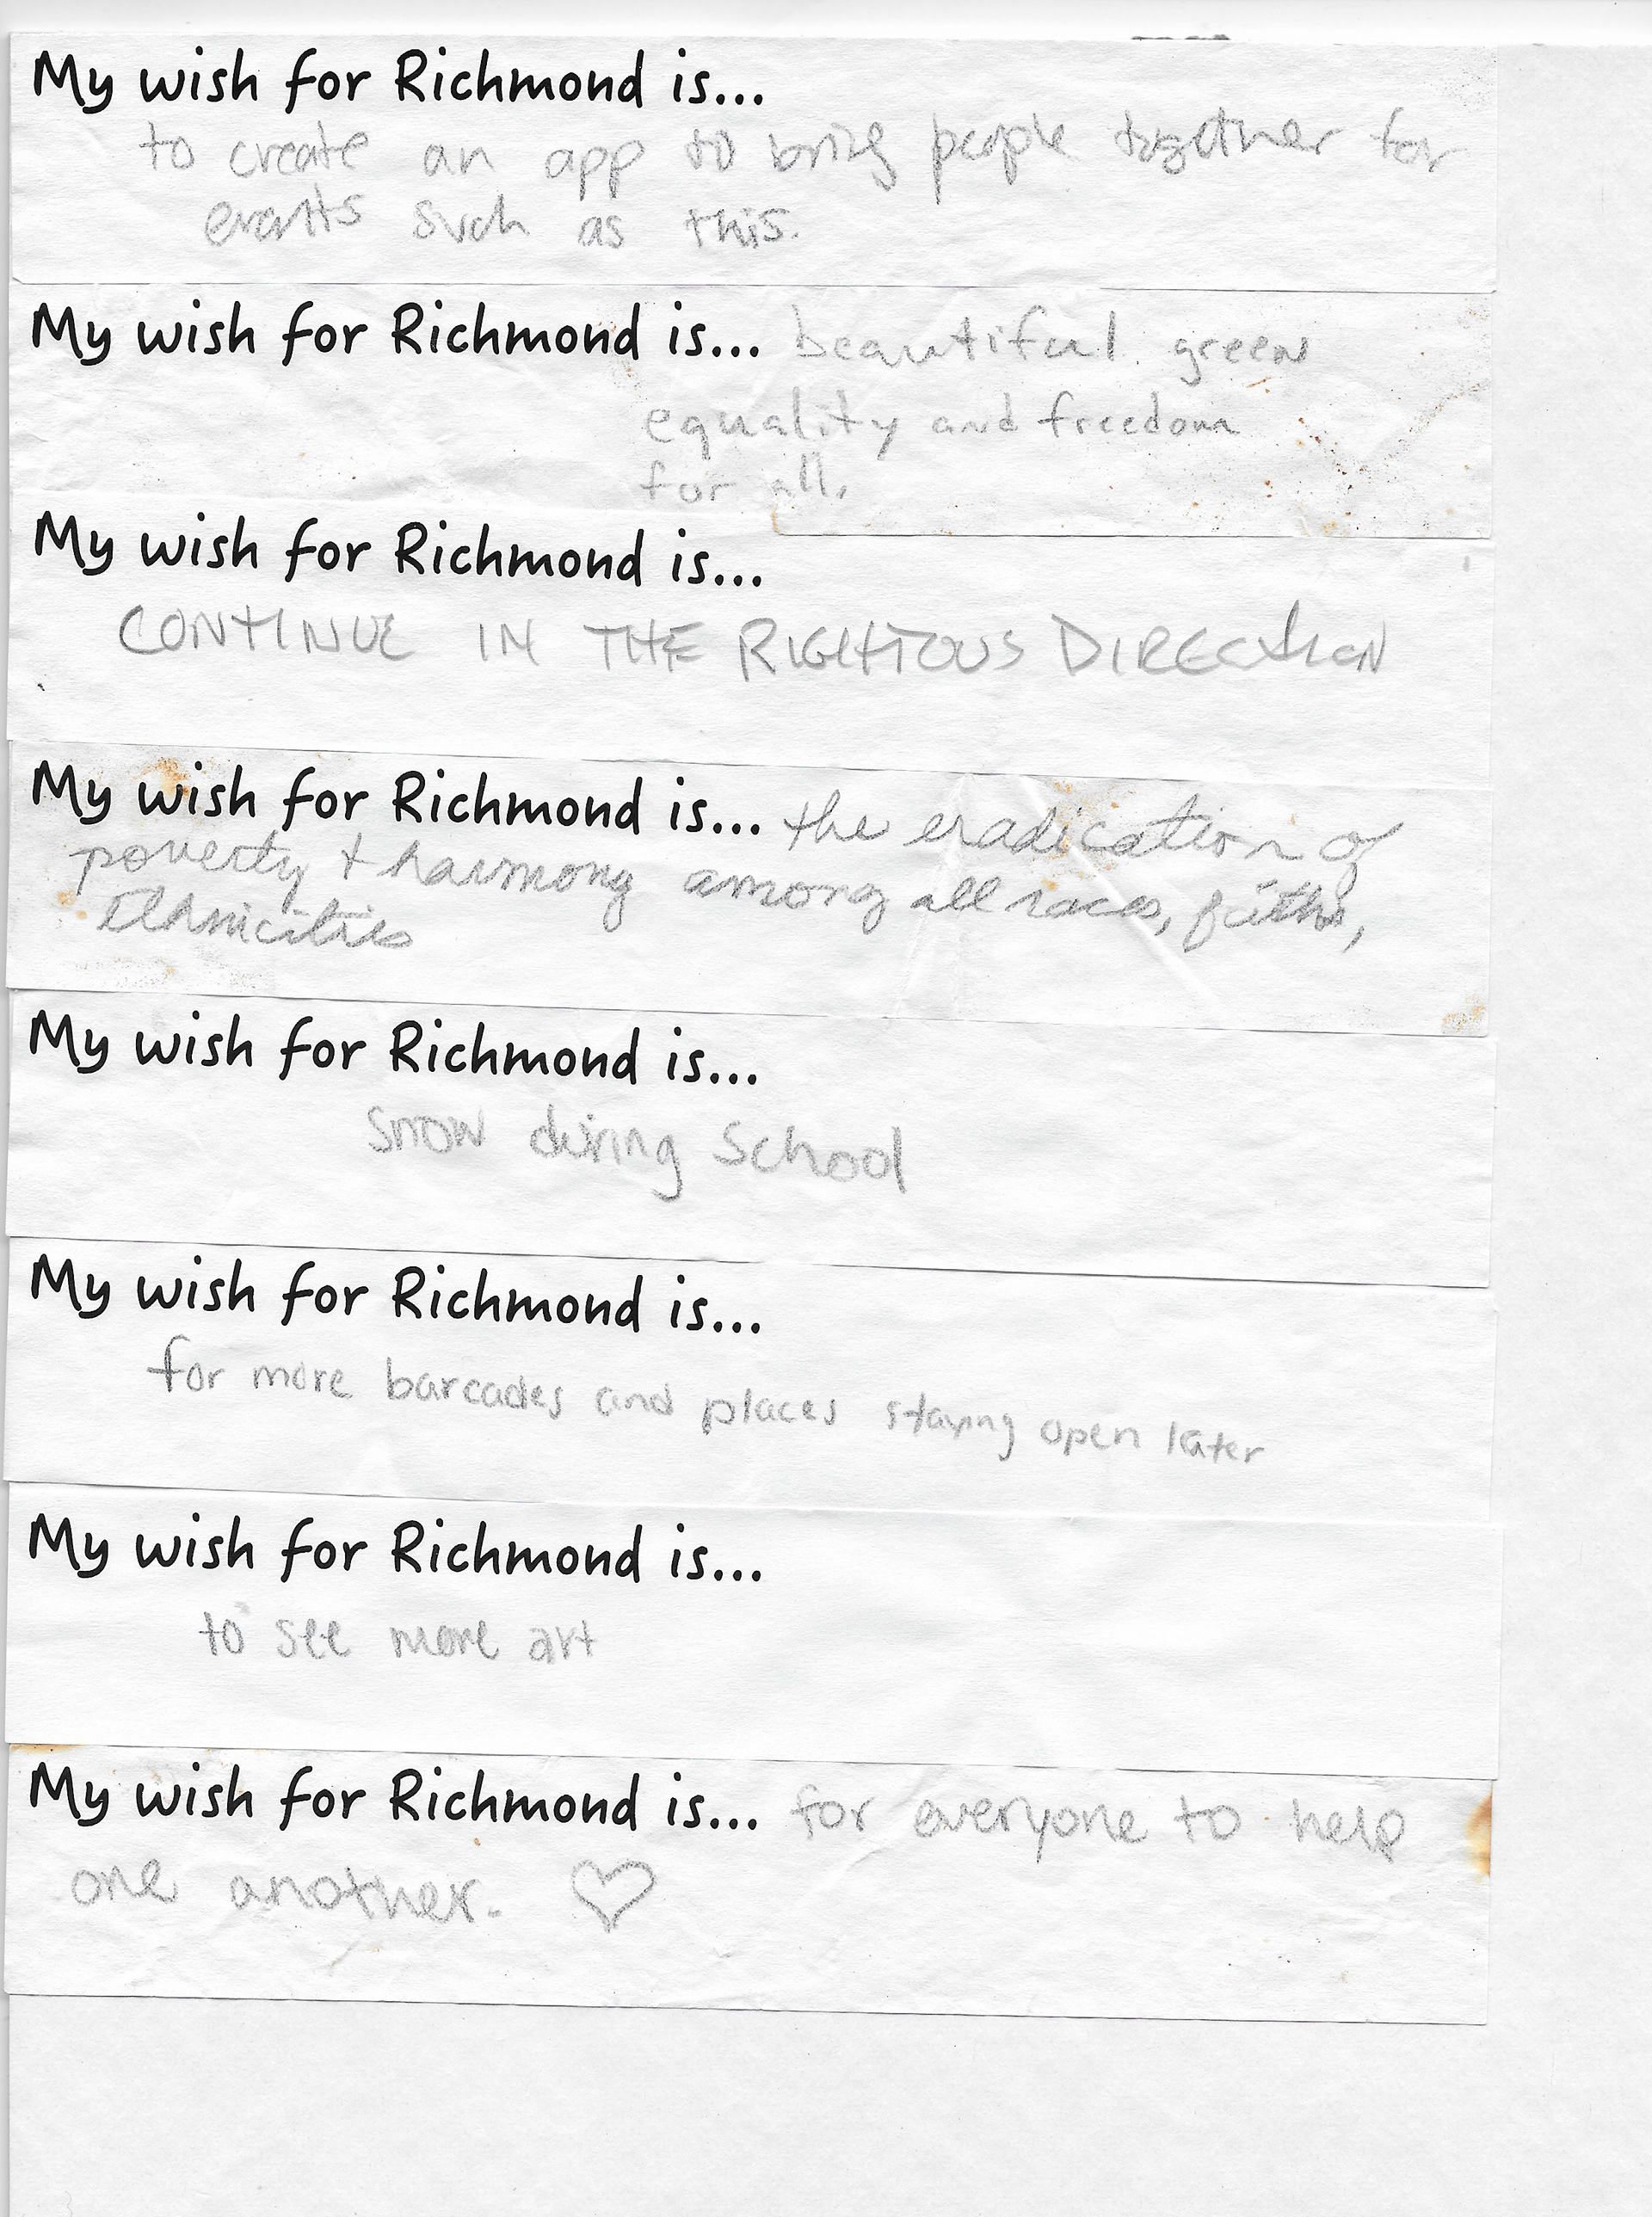 My wish for Richmond is...
to create an app to bring people together for
events such as this.
My wish for Richmond is... beautiful green
equality and freedom
for all.
My wish for Richmond is...
CONTINUE IN THE RIGHTOUS DIRECTION
My wish for Richmond is... the eradication of
poverty + harmony among all races, faiths,
ethnicities
My wish for Richmond is...
Snow during School
My wish for Richmond is...
for more barcades and places staying open later
My wish for Richmond is...
to see more art
My wish for Richmond is... for everyone to help
one another. ♡